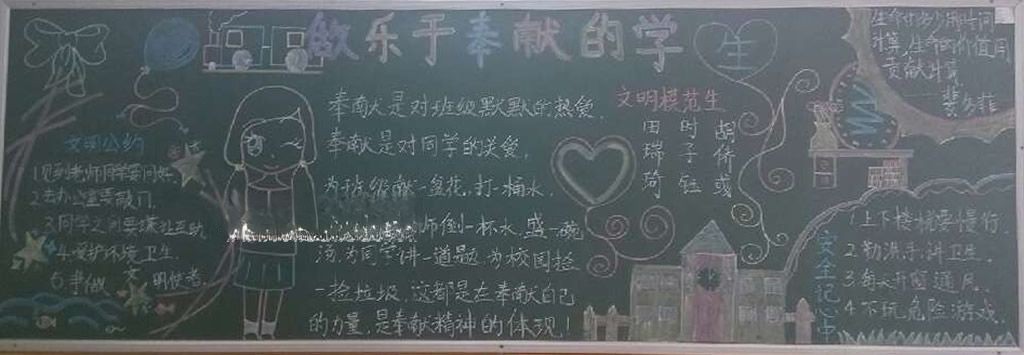 做乐于奉献的学生
文明公约
1.见到老师同学要问好.
2.去办公室要敲门.
3.同学之间要团结互助.
4.爱护环境卫生.
5.争做文明使者.
奉献是对班级默默的热爱.
奉献是对同学的关爱.
为班级献一盆花,打一桶水.
师倒一杯水,盛一碗
汤,为同学讲一道题,为校园捡
一捡垃圾,这都是在奉献自己
的力量,是奉献精神的体现!
文明模范生
田瑞琦
时子钰
胡
用时间
计算,生命的价值用
贡献计算
裴多菲
安全记心中
1.上下楼梯要慢行.
2.勤洗手,讲卫生.
3.每天开窗通风.
4.不玩危险游戏.